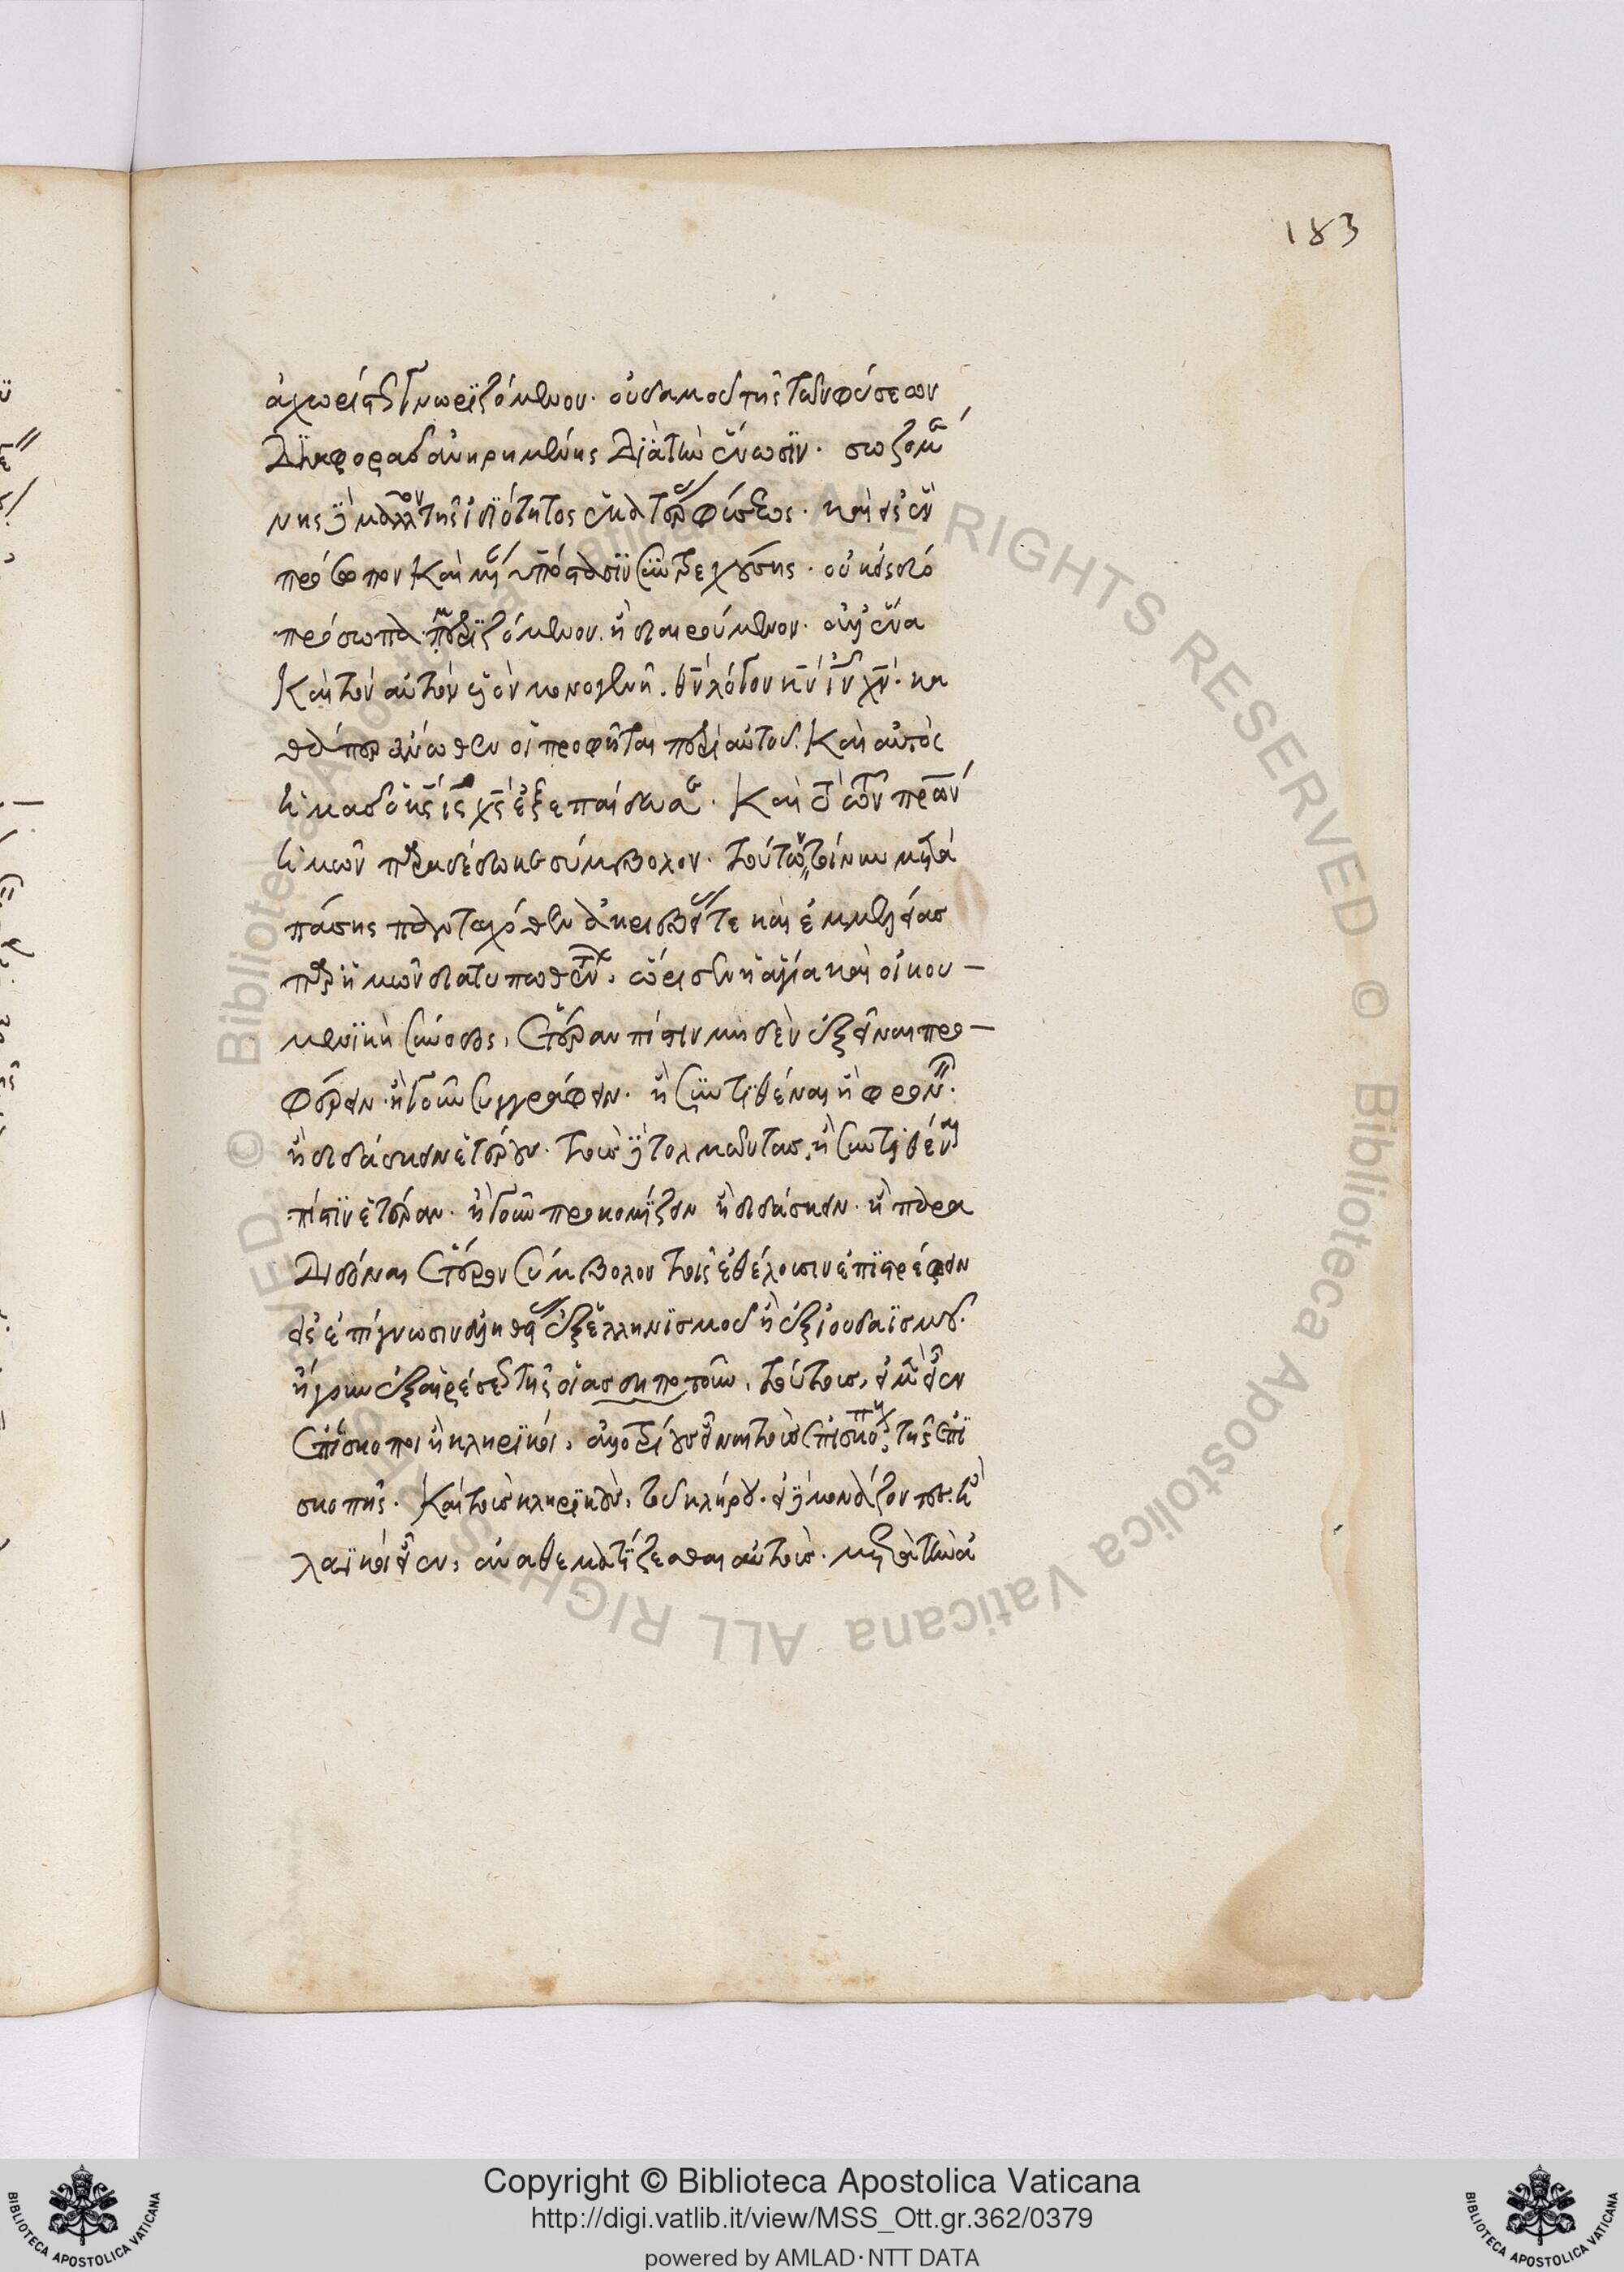 183
ἀχωρίστως γνωριζόμενον. οὐδαμοῦ τῆς τῶν φύσεων
διαφορᾶς ἀνηρημένης διὰ τὴν ἕνωσιν. σωζομέ
νης δὲ μᾶλλον τῆς ἰδιότητος ἑκατέρας φύσεως. καὶ εἰς ἓν
πρόσωπον καὶ μίαν ὑπόστασιν συντρεχούσης. οὐκ εἰς δύο
πρόσωπα μεριζόμενον. ἢ διαιρούμενον. ἀλλ' ἕνα
καὶ τὸν αὐτὸν υἱὸν μονογενῆ. θν λόγον κν ιν χν. κα
θάπερ ἄνωθεν οἱ προφῆται περὶ αὐτοῦ. καὶ αὐτὸς
ἡμᾶς ὁ κς ις χς ἐξεπαίδευσε. καὶ τὸ τῶν πρων
ἡμῶν παραδέδωκε σύμβολον. τούτων τοίνυν μετὰ
πάσης πανταχόθεν ἀκριβείας τε καὶ ἐμμελείας
παρ' ἡμῶν διατυπωθέντων, ὥρισεν ἡ ἁγία καὶ οἰκου
μενικὴ σύνοδος, ἑτέραν πίστιν μηδενὶ ἐξεῖναι προ
φέρειν. ἤγουν συγγράφειν. ἢ συντιθέναι ἢ φρονεῖν.
ἢ διδάσκειν ἑτέρους. τοὺς δὲ τολμῶντας, ἢ συντιθέναι
πίστιν ἑτέραν. ἤγουν προκομίζειν ἢ διδάσκειν. ἢ παρα
διδόναι ἕτερον σύμβολον τοῖς ἐθέλουσιν ἐπιστρέφειν
εἰς ἐπίγνωσιν ἀληθείας ἐξ ἑλληνισμοῦ ἢ ἐξ ἰουδαϊσμοῦ.
ἤγουν ἐξ αἱρέσεως τῆς οἵας δηποτοῦν, τούτους, εἰ μὲν εἶεν
ἐπίσκοποι ἢ κληρικοί, ἀλλοτρίους εἶναι τοὺς ἐπισκόπους τῆς ἐπι
σκοπῆς. καὶ τοὺς κληρικοὺς, τοῦ κλήρου. εἰ δὲ μονάζοντες ἢ
λαϊκοὶ εἶεν, ἀναθεματίζεσθαι αὐτούς. μετὰ τὴν ἀ
Copyright © Biblioteca Apostolica Vaticana
http://digi.vatlib.it/view/MSS_Ott.gr.362/0379
powered by AMLAD·NTT DATA